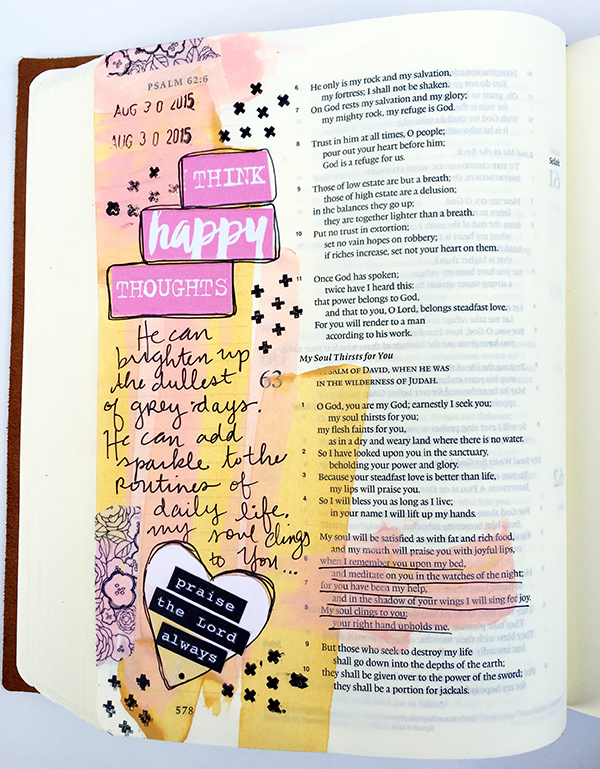 PSALM 62:6
AUG 30 2015
AUG 30 2015
THINK
happy
THOUGHTS
He can
brighten up
the dullest
of grey days.
He can add
sparkle to the
routines of
daily life.
my soul clings
to You...
praise
the Lord
always
578
6 He only is my rock and my salvation,
my fortress; I shall not be shaken.
7 On God rests my salvation and my glory;
my mighty rock, my refuge is God.
8 Trust in him at all times, O people;
pour out your heart before him;
God is a refuge for us.
9 Those of low estate are but a breath;
those of high estate are a delusion;
in the balances they go up;
they are together lighter than a breath.
10 Put no trust in extortion;
set no vain hopes on robbery;
if riches increase, set not your heart on them.
11 Once God has spoken;
twice have I heard this:
that power belongs to God,
and that to you, O Lord, belongs steadfast love.
For you will render to a man
according to his work.
My Soul Thirsts for You
63 PSALM OF DAVID, WHEN HE WAS
IN THE WILDERNESS OF JUDAH.
1 O God, you are my God; earnestly I seek you;
my soul thirsts for you;
my flesh faints for you,
as in a dry and weary land where there is no water.
2 So I have looked upon you in the sanctuary,
beholding your power and glory.
3 Because your steadfast love is better than life,
my lips will praise you.
4 So I will bless you as long as I live;
in your name I will lift up my hands.
My soul will be satisfied as with fat and rich food,
and my mouth will praise you with joyful lips,
6 when I remember you upon my bed,
and meditate on you in the watches of the night;
7 for you have been my help,
and in the shadow of your wings I will sing for joy.
8 My soul clings to you;
your right hand upholds me.
9 But those who seek to destroy my life
shall go down into the depths of the earth;
10 they shall be given over to the power of the sword;
they shall be a portion for jackals.
61
62